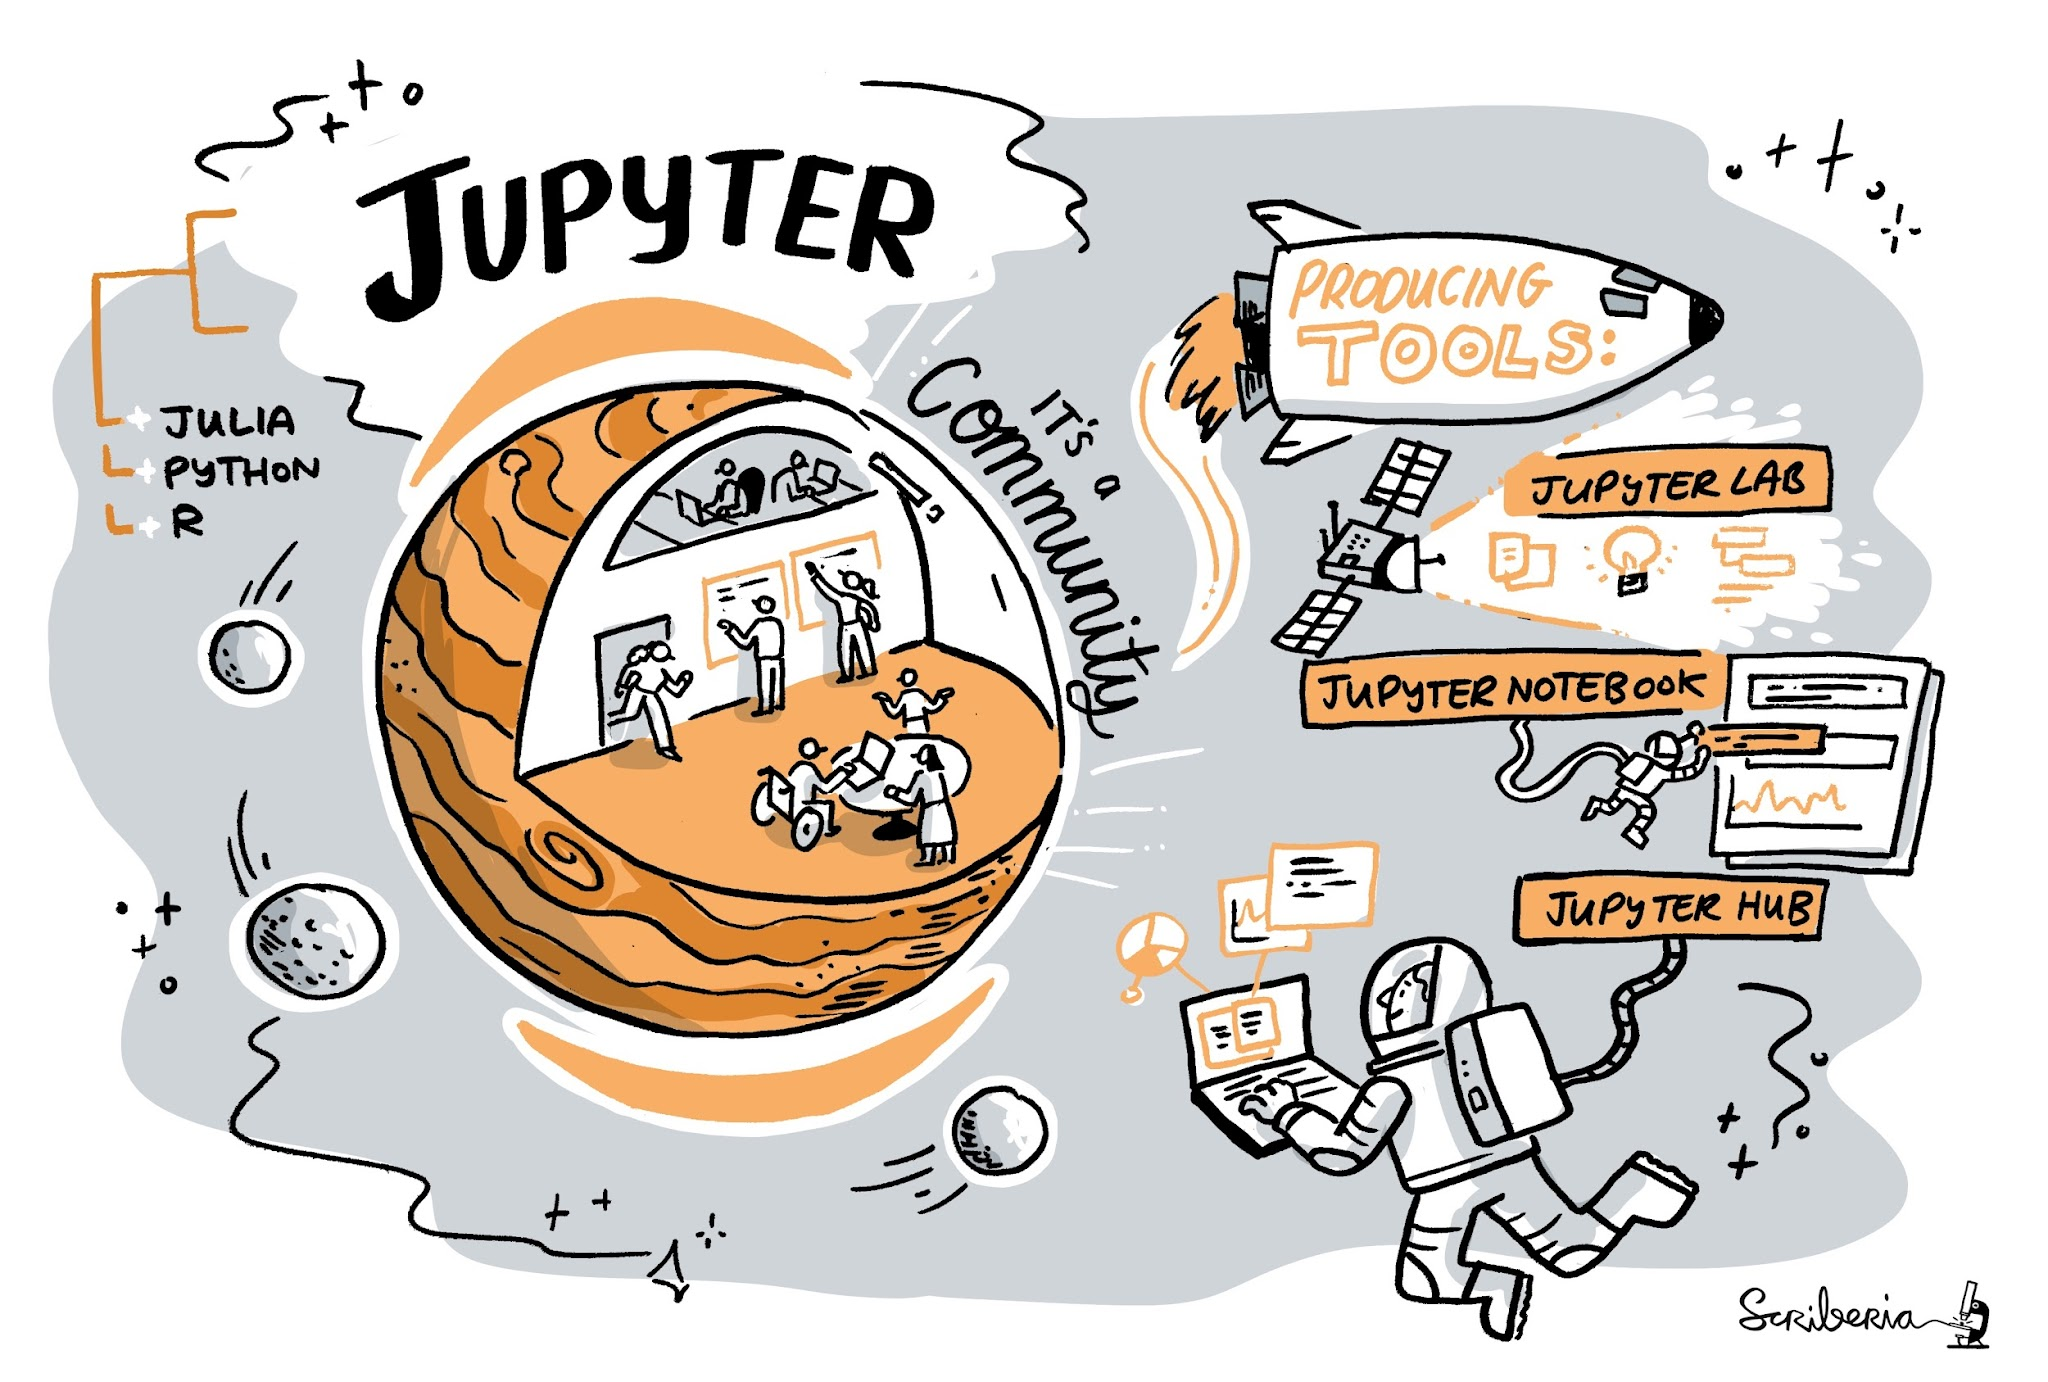 JUPYTER
JULIA
PYTHON
R
IT'S
a
Community
PRODUCING
TOOLS:
JUPYTER LAB
JUPYTER NOTEBOOK
JUPYTER HUB
Scriberia